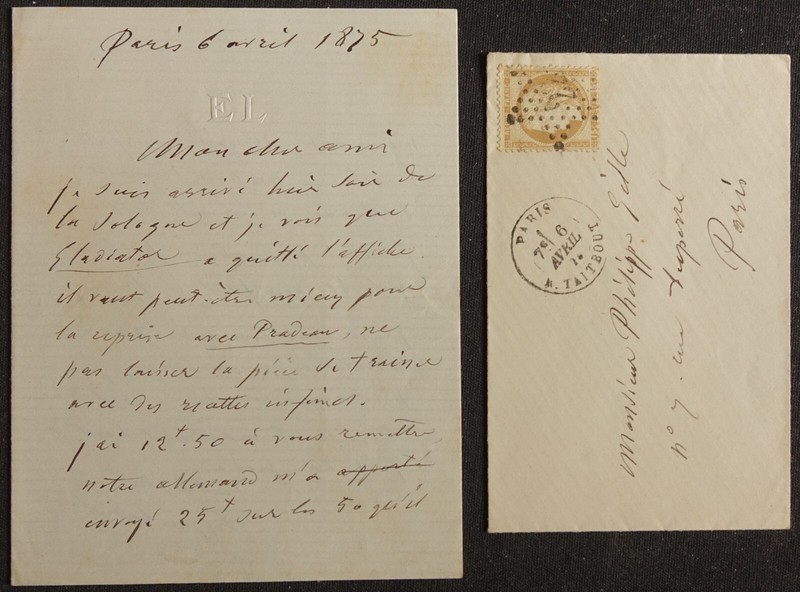 Paris 6 avril 1875
EL
Mon cher ami
je suis arrivé hier soir de
la Sologne et je vois que
Gladiator a quitté l'affiche.
il vaut peut-être mieux pour
la reprise avec Pradeau, ne
pas laisser la pièce se trainer
avec des recettes infimes.
j'ai 12f.50 à vous remettre,
notre allemand m'a apporté
envoyé 25f sur les 50 qu'il
PARIS
7E
6
AVRIL
R. TAITBOUT
Monsieur Philippe Gille
no 7. rue Duperré
Paris